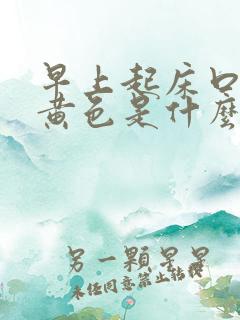 早上起床口
黄色是什麼
另一顆星星
未經同意禁止轉載